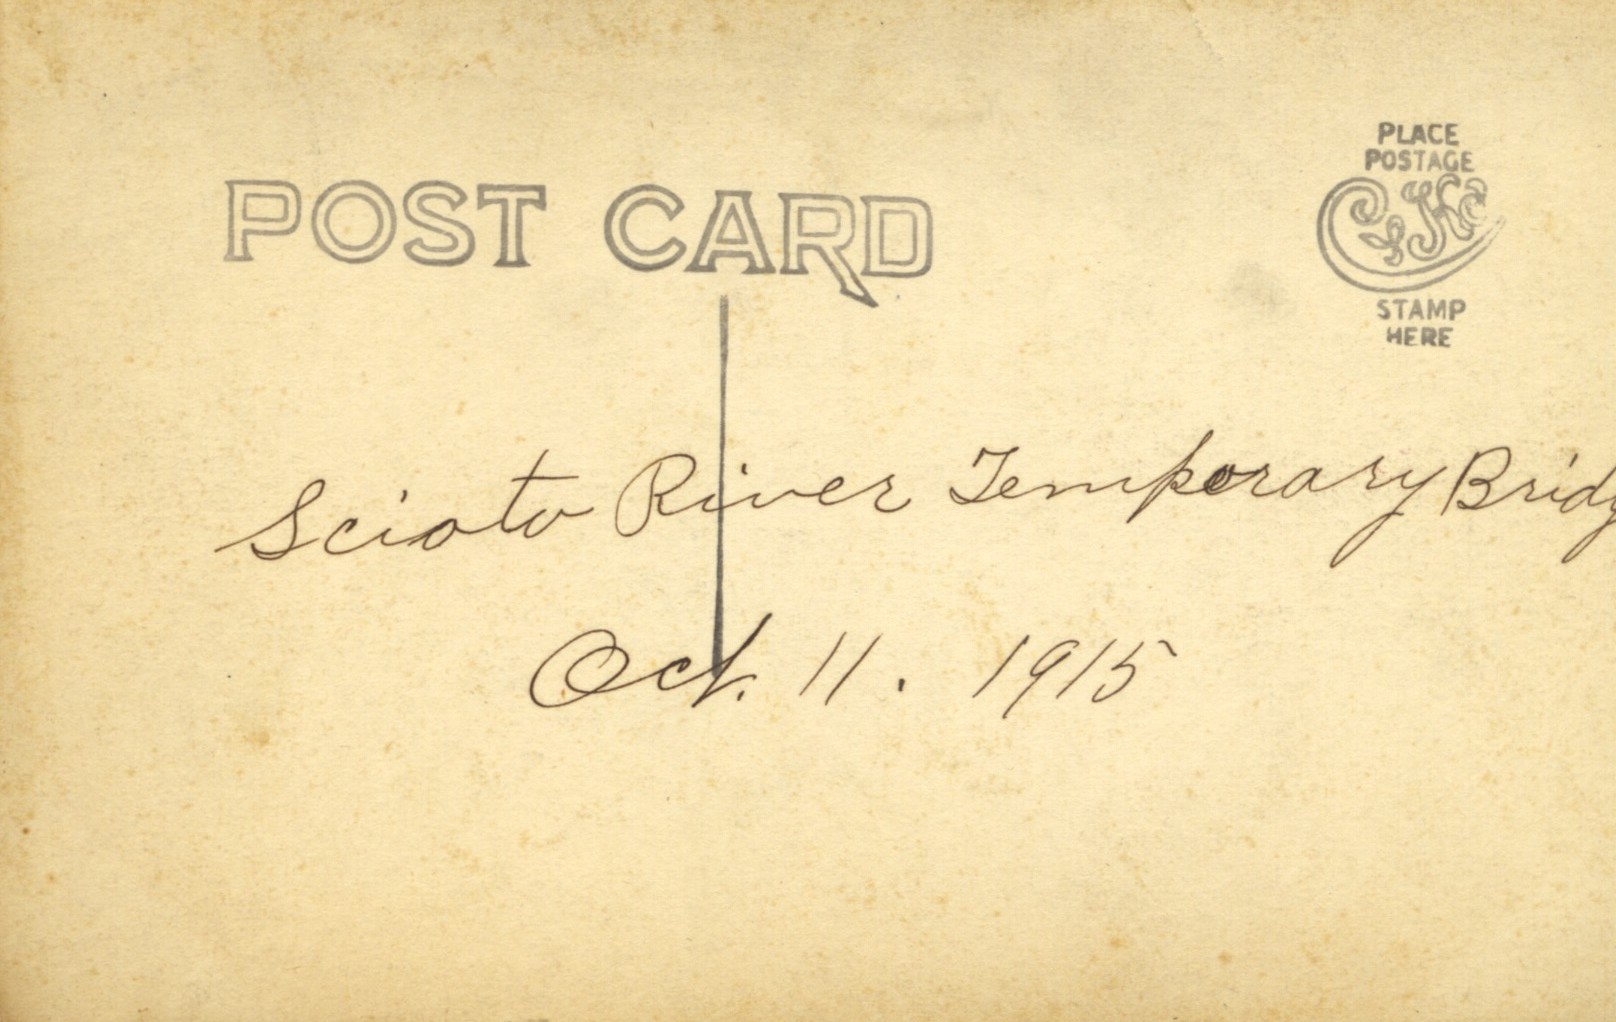 PLACE
POSTAGE
CYKO
STAMP
HERE
POST CARD
Scioto River Temporary Bridg
Oct. 11. 1915